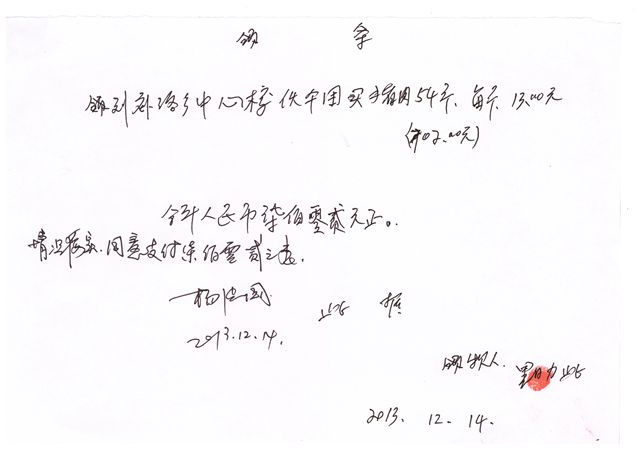 领 条
领到 乡中心校伙食团买猪肉54斤、每斤13.00元
(702.00元)
合计人民币柒佰零贰元正。
情况属实.同意支付柒佰零贰元正.
此 据
2013.12.14.
领款人.
2013. 12. 14.